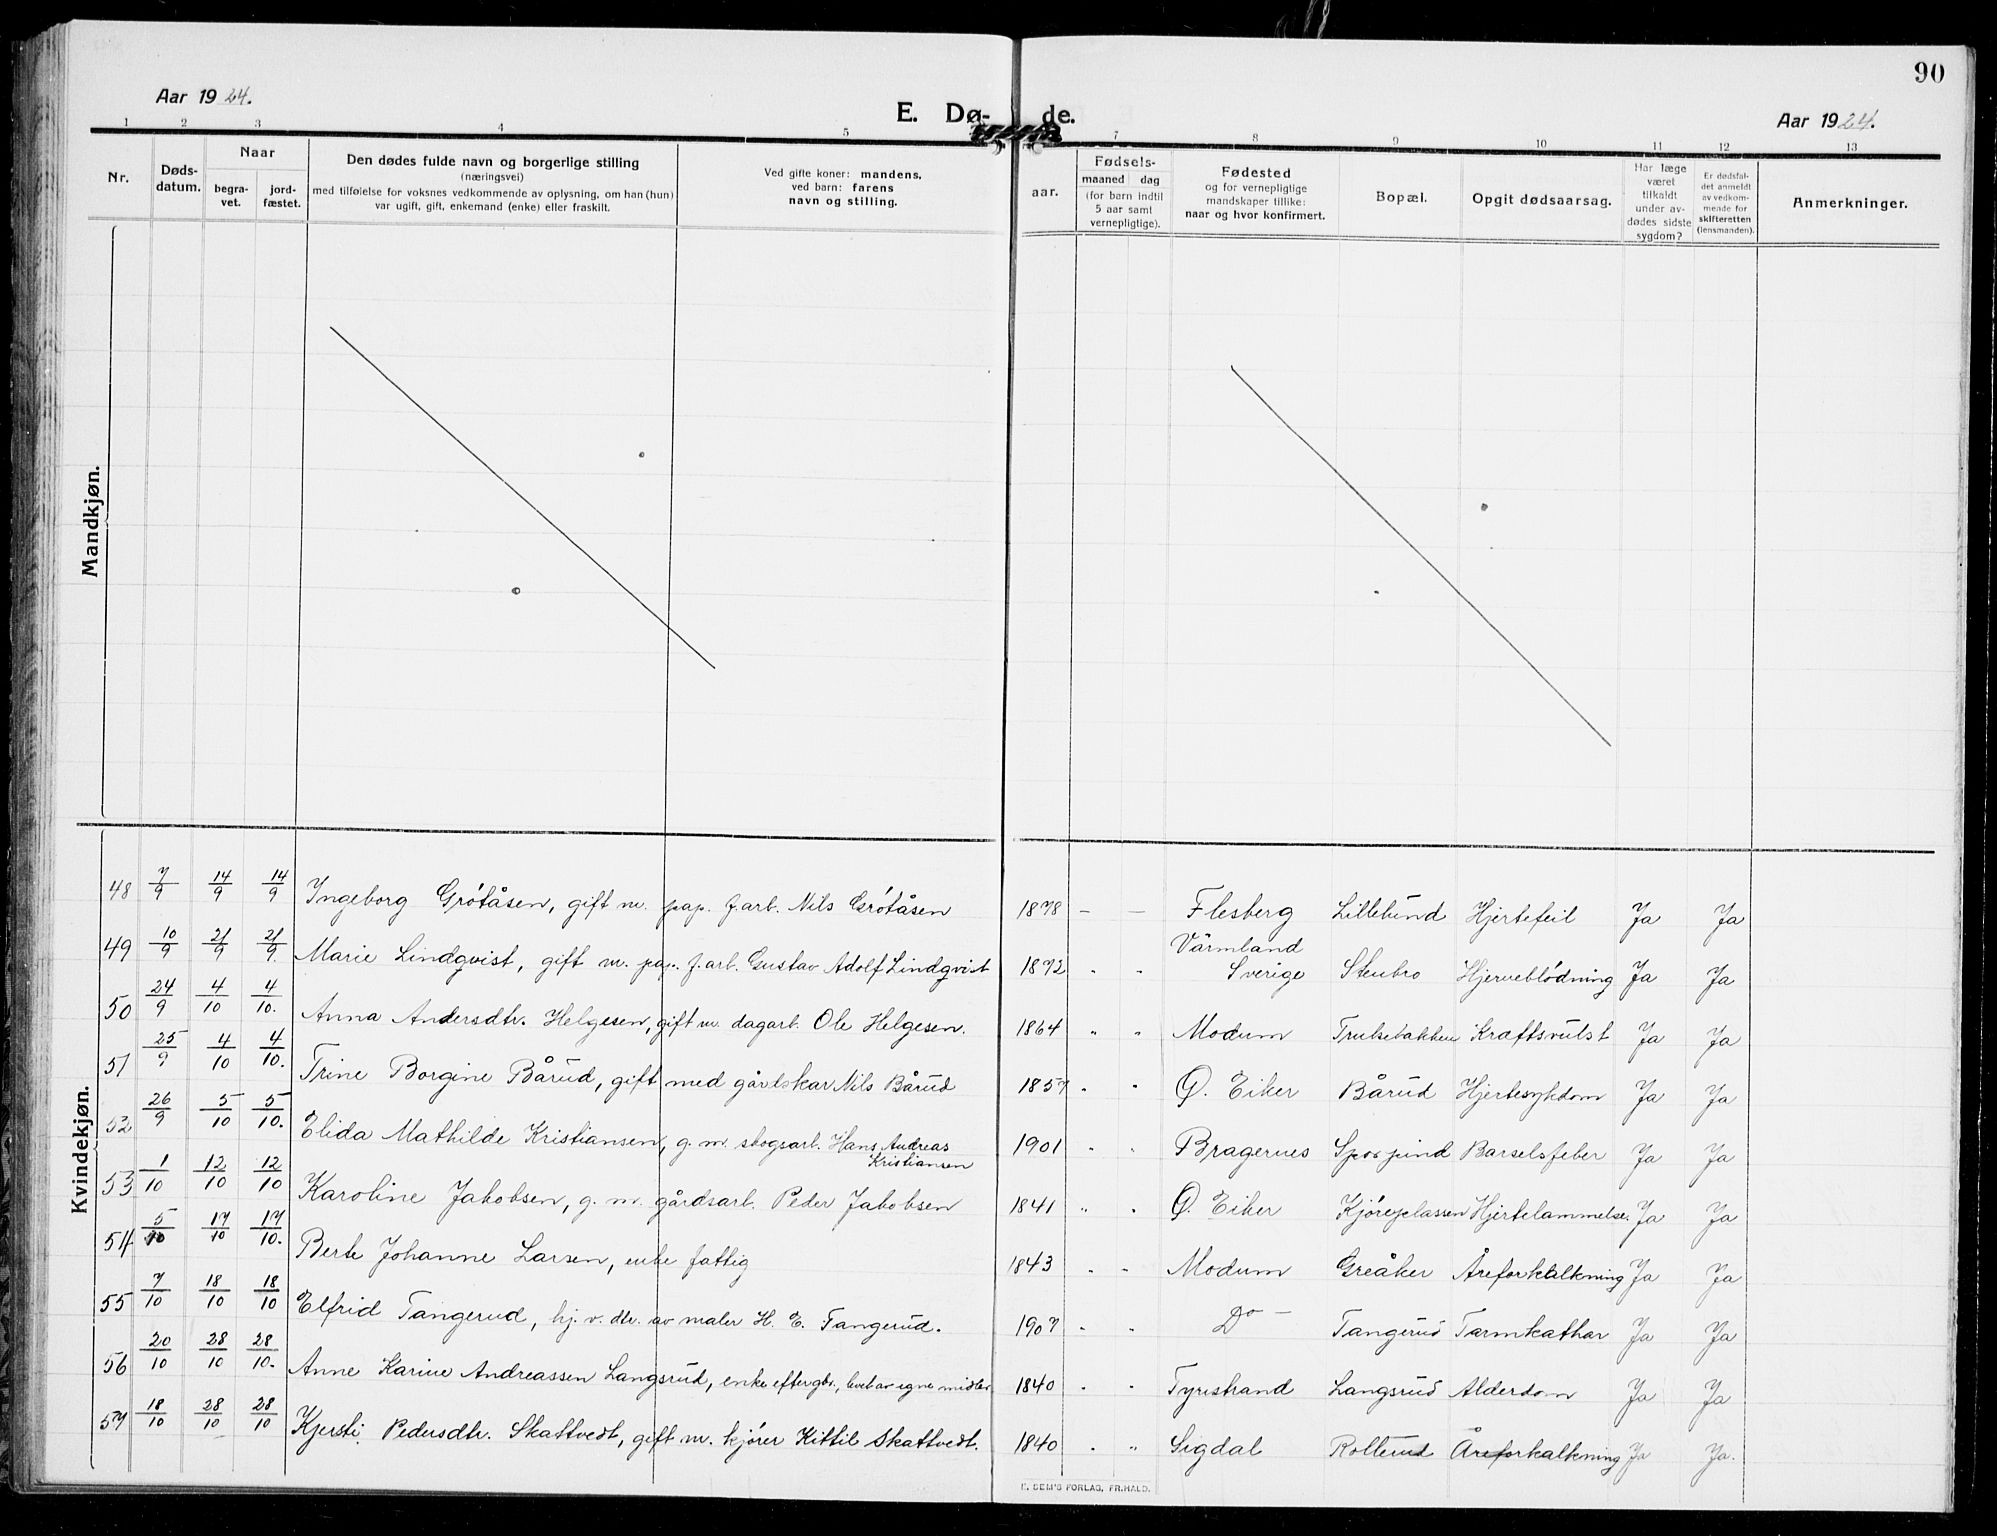 90
Aar 1924.
E. Dø- de.
Aar 1924.
1 2 3 4 5 7 8 9 10 11 12 13
Nr.
Døds-
datum.
Naar
begra-
vet.
jord-
fæstet.
Den dødes fulde navn og borgerlige stilling
(næringsvei)
med tilføielse for voksnes vedkommende av oplysning, om han (hun)
var ugift, gift, enkemand (enke) eller fraskilt.
Ved gifte koner: mandens,
ved barn: farens
navn og stilling.
aar.
Fødsels-
maaned dag
(for barn indtil
5 aar samt
vernepligtige).
Fødested
og for vernepligtige
mandskaper tillike:
naar og hvor konfirmert.
Bopæl.
Opgit dødsaarsag.
Har læge
været
tilkaldt
under av-
dødes sidste
sygdom?
Er dødsfal-
det anmeldt
av vedkom-
mende for
skifteretten
(lensmanden).
Anmerkninger.
Mandkjøn.
Kvindekjøn.
48 7/9 14/9 14/9 Ingeborg Grötåsen, gift m. pap. f.arb. Nils Grötåsen 1878 — — Flesberg Lillelund Hjertefeil Ja Ja
49 10/9 21/9 21/9. Marie Lindqvist, gift m. pap. f.arb. Gustav Adolf Lindqvist 1872 " " Värmland
Sverige Stenbro Hjerneblödning Ja Ja
50 24/9 4/10 4/10. Anna Andersdtr. Helgesen, gift m. dagarb. Ole Helgesen. 1864 " " Modum Trulsebakken Kræftsvulst Ja Ja
51 25/9 4/10 4/10. Trine Borgine Bårud, gift med gårdskar Nils Bårud 1857 " " Ö. Eiker Bårud Hjertesykdom Ja Ja
52 26/9 5/10 5/10. Elida Mathilde Kristiansen, g. m. skogsarb. Hans Andreas
Kristiansen 1901 " " Bragernes Sporpind Barselsfeber Ja Ja
53 1/10 12/10 12/10 Karoline Jakobsen, g. m. gårdsarb. Peder Jakobsen 1841 " " Ö. Eiker Kjöreplassen Hjertelammelse. Ja Ja
54 5/10 17/10 17/10. Berte Johanne Larsen, enke fattig 1843 " " Modum Greåker Åreforkalkning Ja Ja
55 7/10 18/10 18/10 Elfrid Tangerud, hj. v. dtr. av maler H. E. Tangerud. 1907 " " Do — Tangerud Tarmkathar Ja Ja
56 20/10 28/10 28/10. Anne Karine Andreassen Langsrud, enke efter gbr., levet av egne midler 1840 " " Tyristrand Langsrud Alderdom Ja Ja
57 18/10 28/10 28/10 Kjersti Pedersdtr. Skattvedt, gift m. kjörer Kittil Skattvedt. 1840 " " Sigdal Rollerud Åreforkalkning Ja Ja.
E. SEM'S FORLAG, FR.HALD.